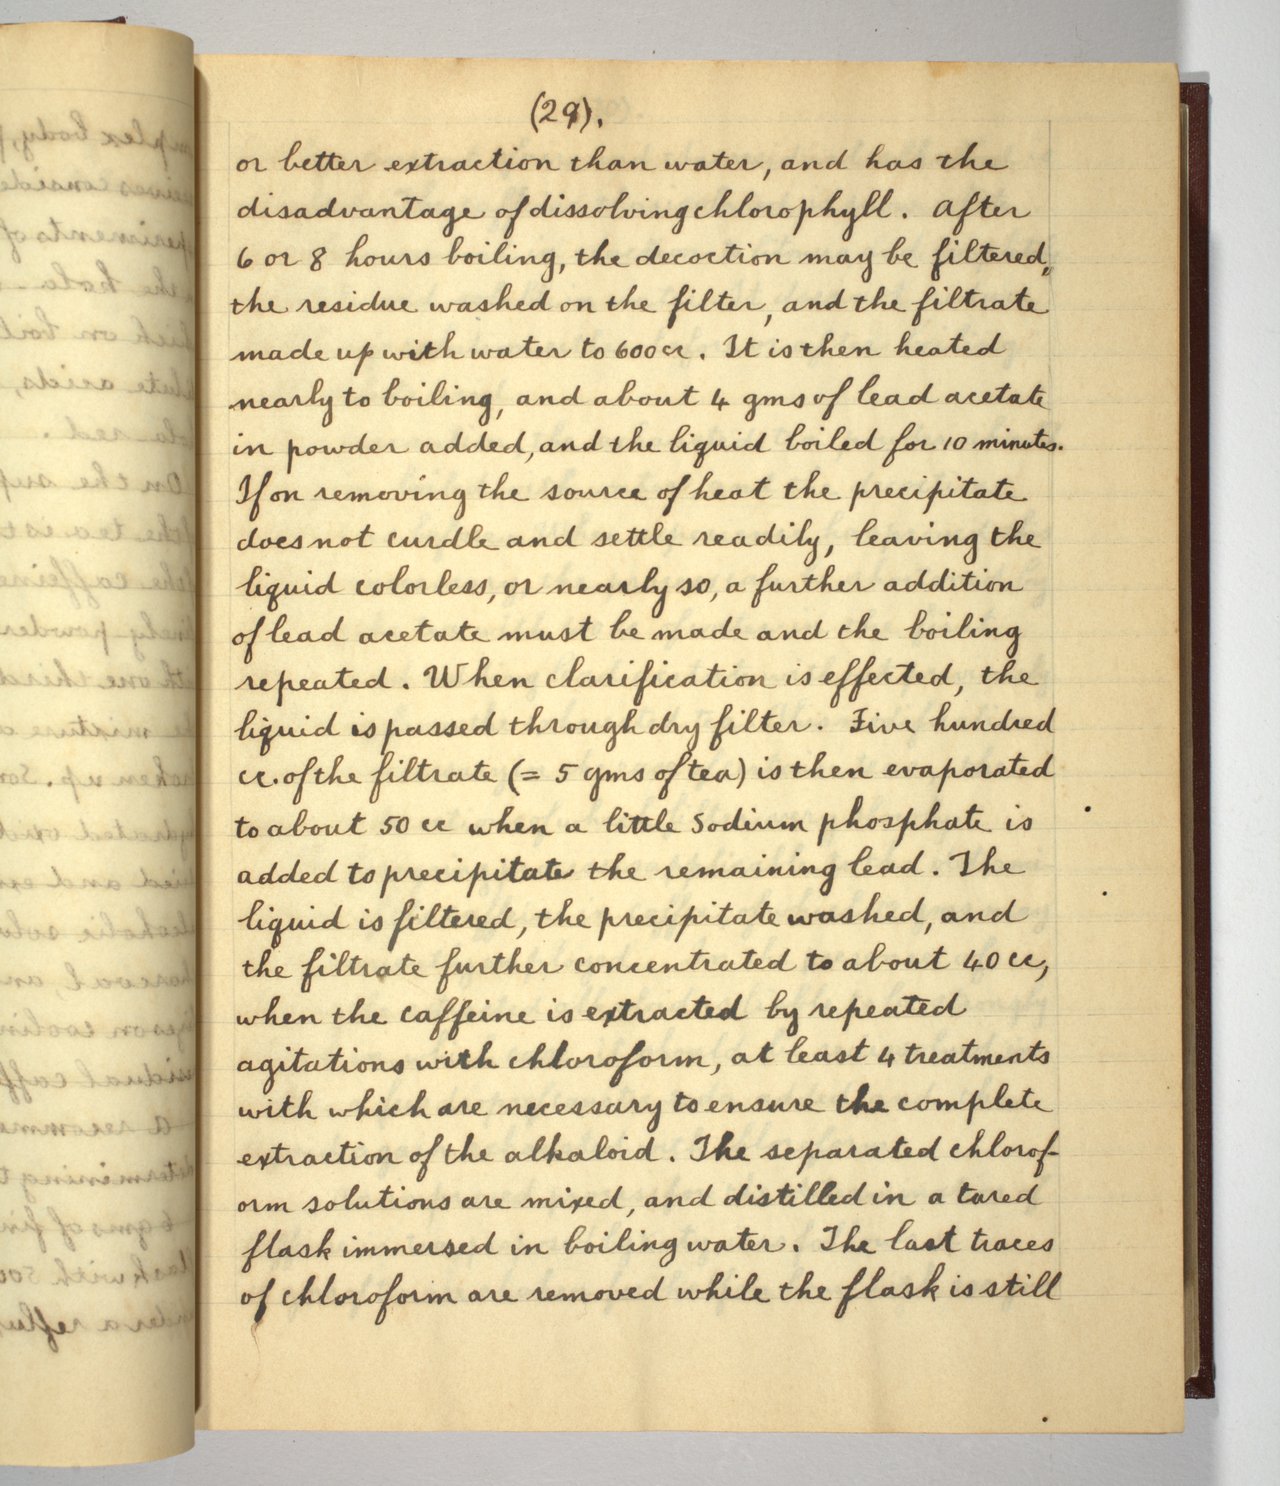 (29).
or better extraction than water, and has the
disadvantage of dissolving chlorophyll. After
6 or 8 hours boiling, the decoction may be filtered,
the residue washed on the filter, and the filtrate
made up with water to 600 cc. It is then heated
nearly to boiling, and about 4 gms of lead acetate
in powder added, and the liquid boiled for 10 minutes.
If on removing the source of heat the precipitate
does not curdle and settle readily, leaving the
liquid colorless, or nearly so, a further addition
of lead acetate must be made and the boiling
repeated. When clarification is effected, the
liquid is passed through dry filter. Five hundred
cc. of the filtrate (= 5 gms of tea) is then evaporated
to about 50 cc when a little Sodium phosphate is
added to precipitate the remaining lead. The
liquid is filtered, the precipitate washed, and
the filtrate further concentrated to about 40 cc,
when the caffeine is extracted by repeated
agitations with chloroform, at least 4 treatments
with which are necessary to ensure the complete
extraction of the alkaloid. The separated chlorof-
orm solutions are mixed, and distilled in a tared
flask immersed in boiling water. The last traces
of chloroform are removed while the flask is still